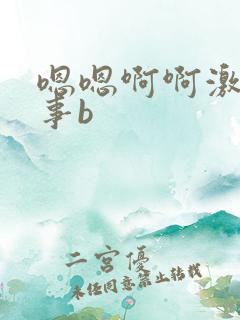 嗯嗯啊啊激
事b
二宫優
未经同意禁止转载